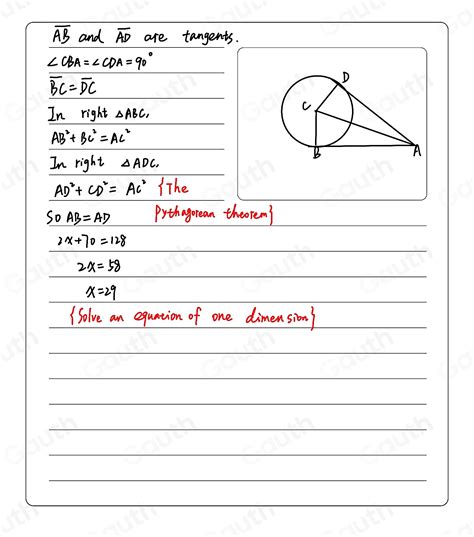 AB and AD are tangents.
∠CBA=∠CDA=90°
BC=DC
In right △ABC,
AB²+BC²=AC²
In right △ADC,
AD²+CD²=AC² {The
Pythagorean theorem}
So AB=AD
2x+70=128
2x=58
x=29
{Solve an equation of one dimension}
D
C
B
A
Gauth